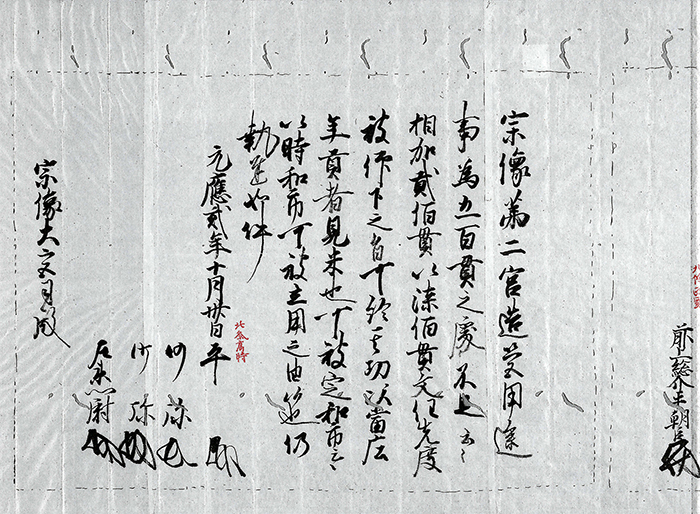 前上総介平朝臣
宗像第二宮造営用途
事為五百貫之處不足云々
相加貳佰貫以漆佰貫文任先度
被仰下之旨可終其功以當庄
年貢者見米也可被定和市云々
以時和市可被立用之由 仍
執達如件
元應貳年十月卅日 平
沙弥
沙弥
左衛門尉
宗像大宮司殿